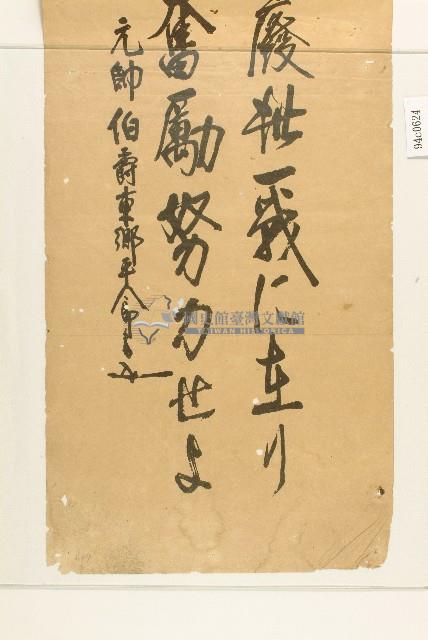 廢此一戰に在り
奮勵努力せよ
元帥伯爵東郷平八郎書
國史館臺灣文獻館
TAIWAN HISTORICA
94c0624